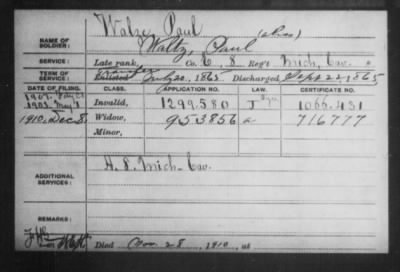 NAME OF SOLDIER: Walze, Paul (alias)
Waltz, Paul
SERVICE: Late rank, Co. C, 8 Reg't Mich. Cav.
TERM OF SERVICE: Enlisted July 20, 1865 Discharged Sept 22 1865
DATE OF FILING. CLASS. APPLICATION NO. LAW. CERTIFICATE NO.
1903. May 1 Invalid, 1299.580 J 1066.431
1910, Dec 8 Widow, 953856 a 716777
Minor,
ADDITIONAL SERVICES: H. 8. Mich. Cav.
REMARKS:
Died Nov. 28, 1910, at